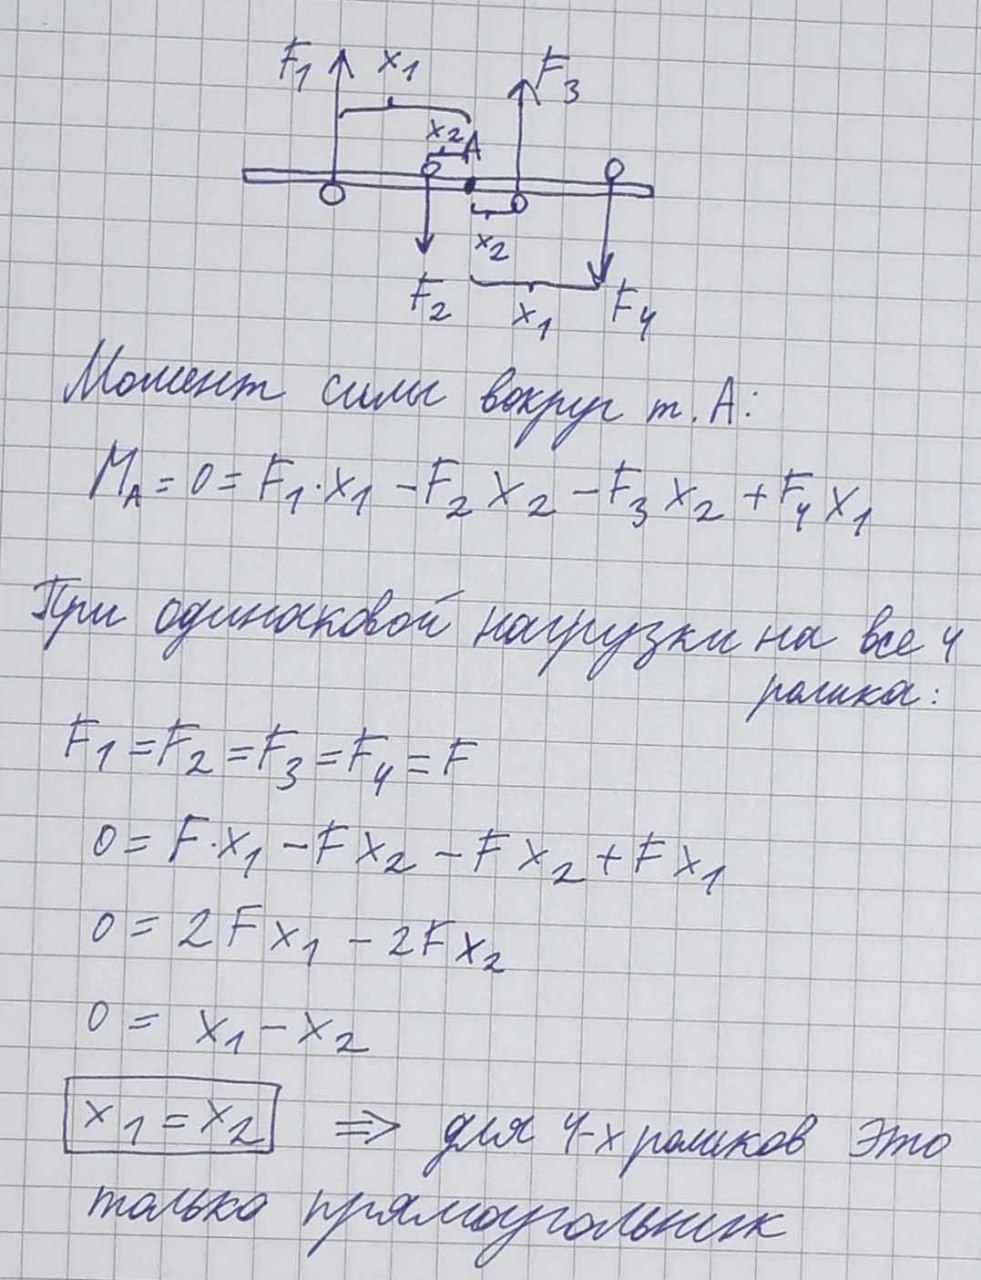 F₁ x₁ F₃
x₂ A
x₂
F₂ x₁ F₄
Момент силы вокруг т. А:
M_A = 0 = F₁·x₁ - F₂x₂ - F₃x₂ + F₄x₁
При одинаковой нагрузки на все 4
ролика:
F₁ = F₂ = F₃ = F₄ = F
0 = F·x₁ - Fx₂ - Fx₂ + Fx₁
0 = 2Fx₁ - 2Fx₂
0 = x₁ - x₂
x₁ = x₂ ⇒ для 4-х роликов это
только прямоугольник